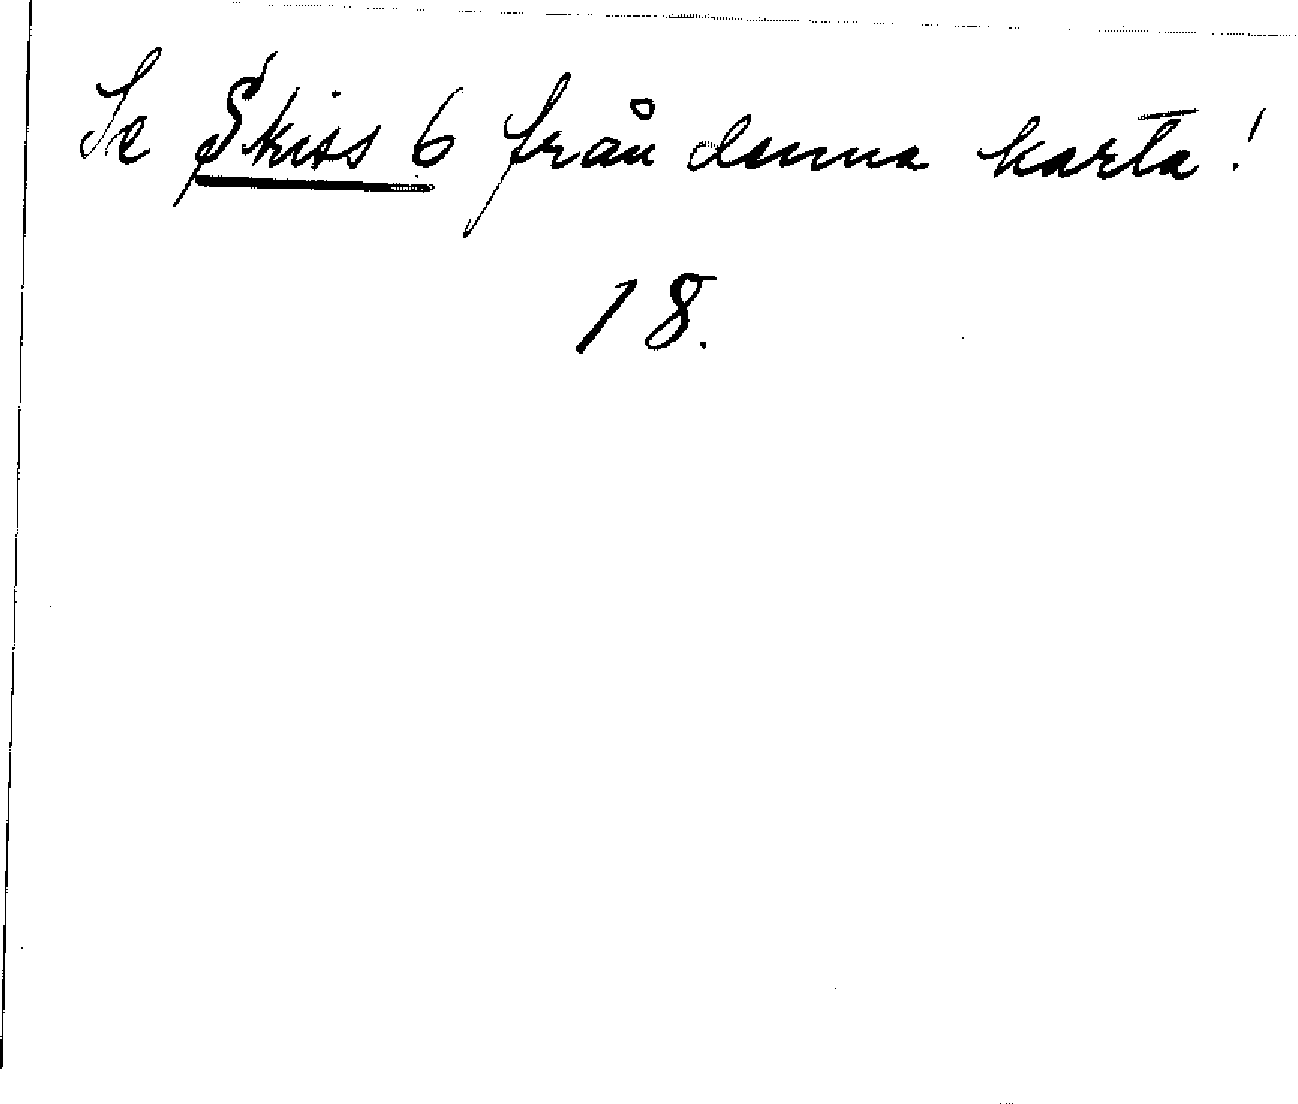 Se Skiss 6 från denna karta!
18.